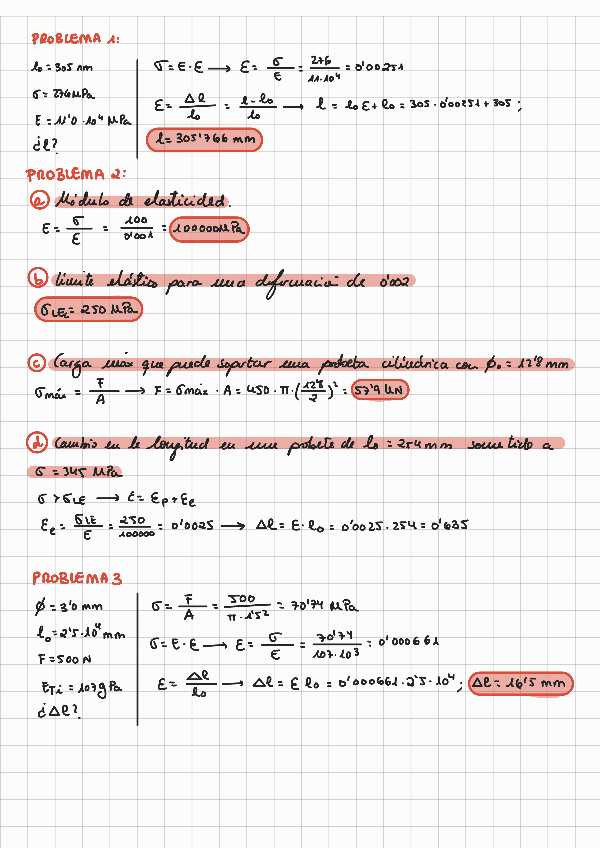 PROBLEMA 1:
l₀ = 305 mm
σ = 276 MPa
E = 11'0 · 10⁴ MPa
¿l?
σ = E · ε → ε = σ/E = 276/11·10⁴ = 0'00251
ε = Δl/l₀ = l - l₀/l₀ → l = l₀ ε + l₀ = 305 · 0'00251 + 305 ;
l = 305'766 mm
PROBLEMA 2:
a Módulo de elasticidad.
E = σ/ε = 100/0'001 = 100000 MPa
b límite elástico para una deformación de 0'002
σLE = 250 MPa
c Carga máx que puede soportar una probeta cilíndrica con ϕ₀ = 12'8 mm
σmáx = F/A → F = σmáx · A = 450 · π · (12'8/2)² = 57'9 kN
d Cambio en la longitud en una probeta de l₀ = 254 mm sometida a
σ = 345 MPa
σ > σLE → ε = εp + εe
εe = σLE/E = 250/100000 = 0'0025 → Δl = ε · l₀ = 0'0025 · 254 = 0'635
PROBLEMA 3
ϕ = 3'0 mm
l₀ = 2'5 · 10⁴ mm
F = 500 N
ETi = 107 gPa
¿Δl?
σ = F/A = 500/π · 1'5² = 70'74 MPa
σ = E · ε → ε = σ/E = 70'74/107·10³ = 0'000661
ε = Δl/l₀ → Δl = ε l₀ = 0'000661 · 2'5 · 10⁴ ; Δl = 16'5 mm